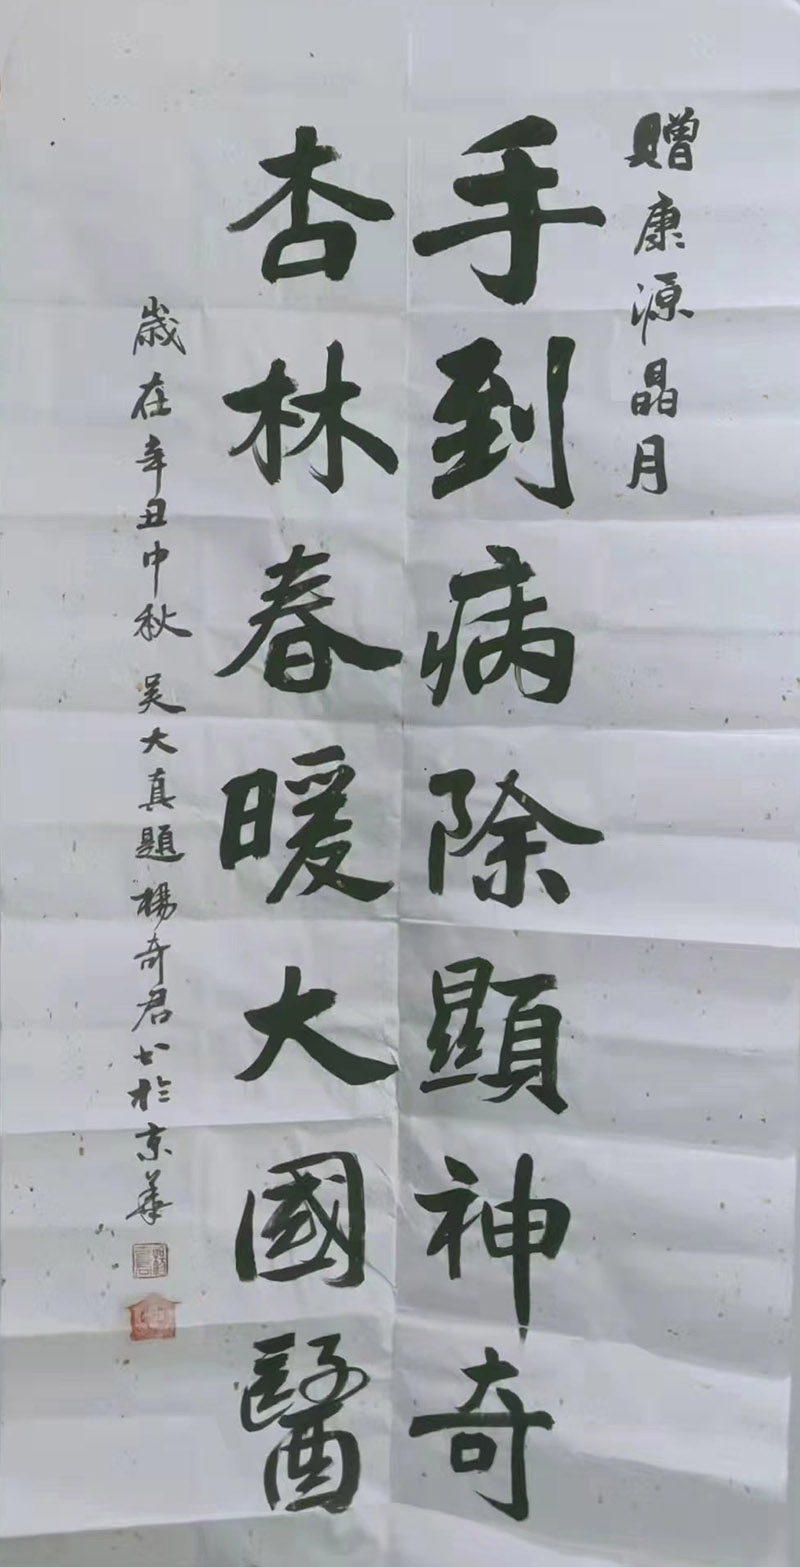 贈康源晶月
手到病除顯神奇
杏林春暖大國醫
歲在辛丑中秋 吴大真題 楊奇君书於京華